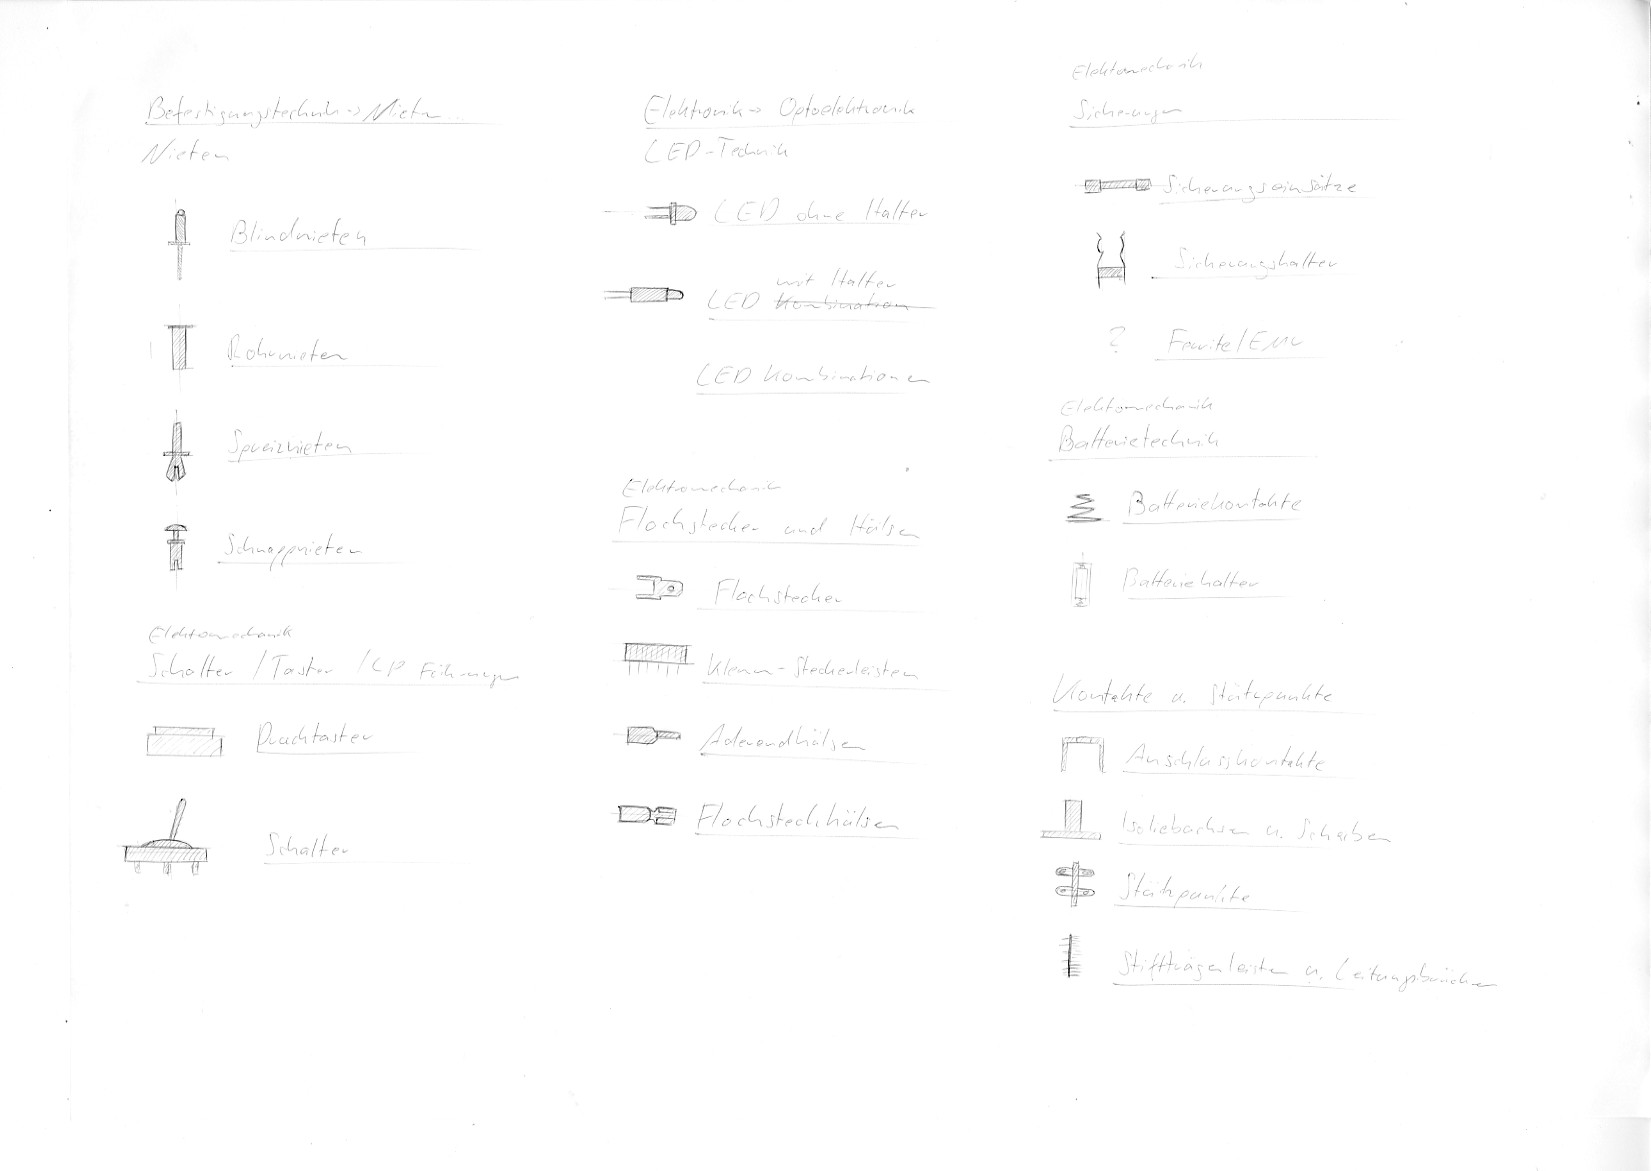 Befestigungstechnik → Nieten...
Nieten
Blindnieten
Rohrnieten
Spreiznieten
Schnappnieten
Elektromechanik
Schalter / Taster / LP Führungen
Drucktaster
Schalter
Elektronik → Optoelektronik
LED-Technik
LED ohne Halter
mit Halter
LED Kombination
LED Kombinationen
Elektromechanik
Flachstecker und Hülsen
Flachstecker
Klemm-Steckerleisten
Aderendhülsen
Flachsteckhülsen
Elektromechanik
Sicherungen
Sicherungseinsätze
Sicherungshalter
? Ferrite/EMV
Elektromechanik
Batterietechnik
Batteriekontakte
Batteriehalter
Kontakte u. Stützpunkte
Anschlusskontakte
Isolierbuchsen u. Scheiben
Stützpunkte
Stiftträgerleisten u. Leitungsbrücken